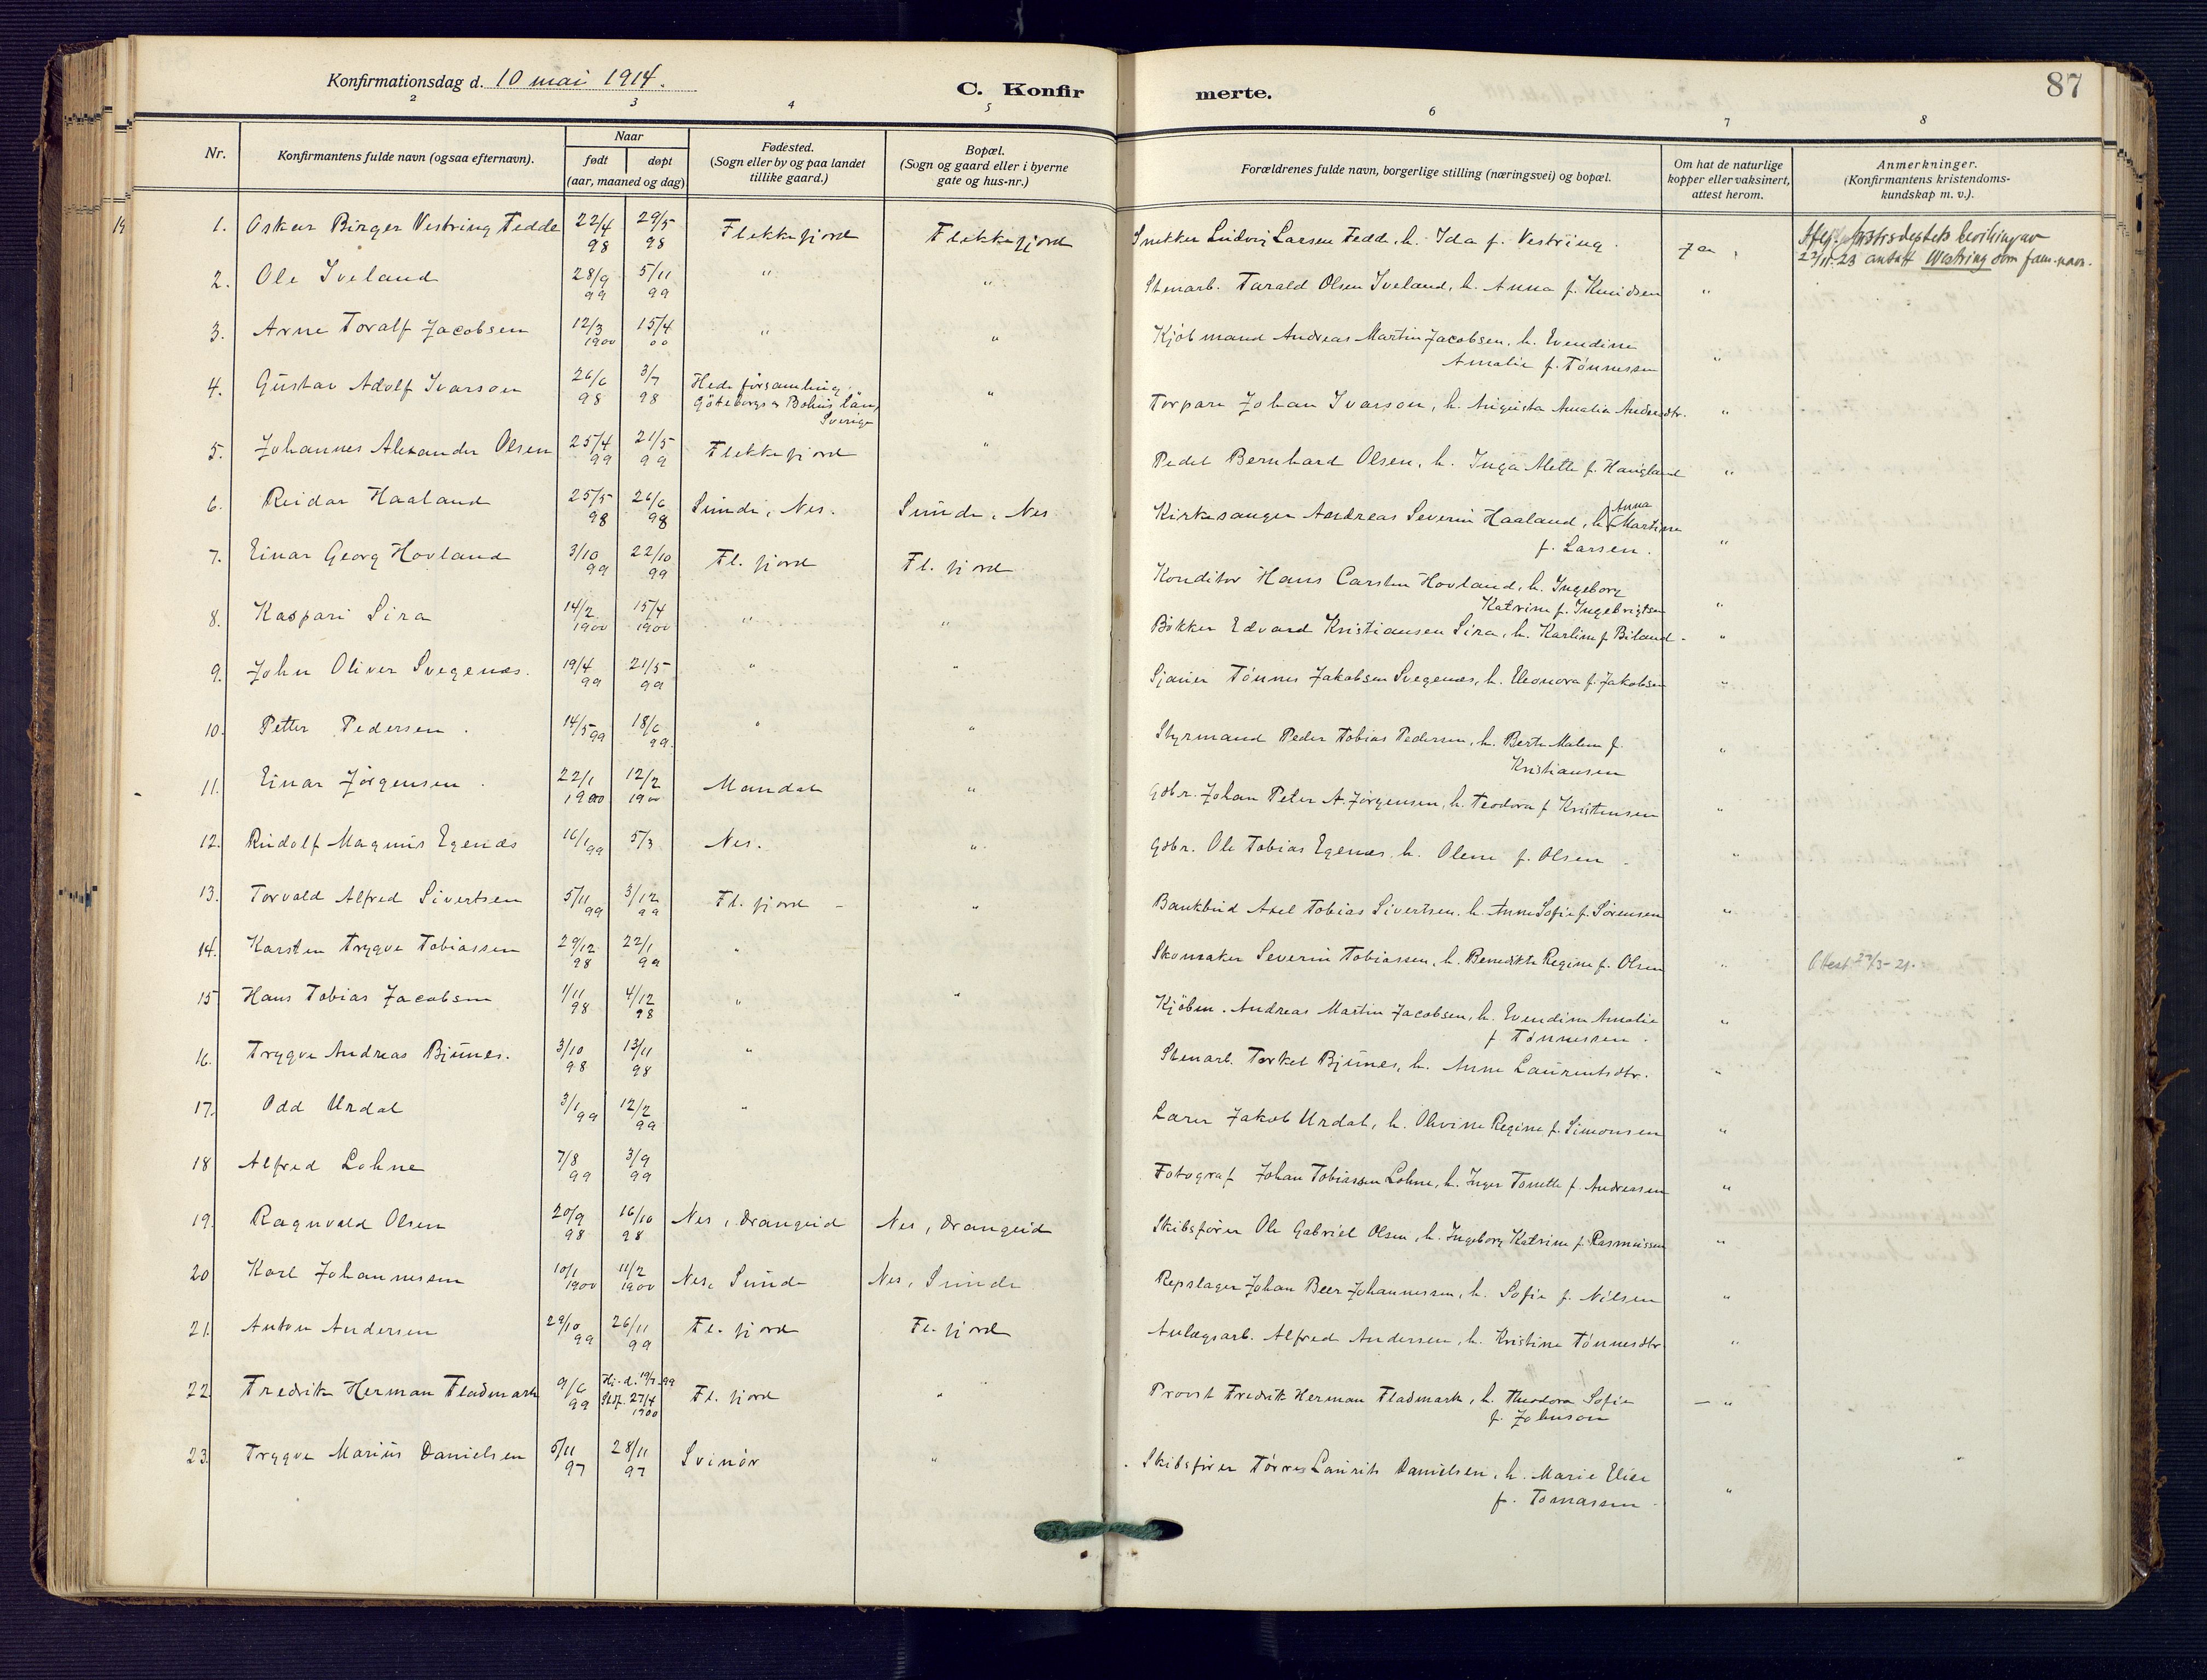 Konfirmationsdag d. 10 mai 1914.
C. Konfirmerte.
87
2 3 4 5 6 7 8
Nr.
Konfirmantens fulde navn (ogsaa efternavn).
Naar
født døpt
(aar, maaned og dag)
Fødested.
(Sogn eller by og paa landet
tillike gaard.)
Bopæl.
(Sogn og gaard eller i byerne
gate og hus-nr.)
Forældrenes fulde navn, borgerlige stilling (næringsvei) og bopæl.
Om hat de naturlige
kopper eller vaksinert,
attest herom.
Anmerkninger.
(Konfirmantens kristendoms-
kundskap m. v.).
19
1. Oskar Birger Vestring Fedde 22/4 98 29/5 98 Flekkefjord Flekkefjord Snekker Ludvig Larsen Fedd, h. Ida f. Vestring. Ja
22/11-23 antatt Westring som fam.navn.
2. Ole Iveland 28/9 99 5/11 99 " " Stenarb. Tarald Olsen Iveland, h. Anna f. Knudsen "
3. Arne Toralf Jacobsen 12/3 1900 15/4 00 " " Kjøbmand Andreas Martin Jacobsen, h. Evendine
Amalie f. Tønnessen "
4. Gustav Adolf Ivarson 26/6 98 3/7 98 Hede församling.
Göteborgs & Bohus län,
Sverige " Torpare Johan Ivarson, h. Augusta Amalia Andersdtr. "
5. Johannes Alexander Olsen 25/4 99 21/5 99 Flekkefjord " Pedel Bernhard Olsen, h. Inga Mette f. Haugland "
6. Reidar Haaland 25/5 98 26/6 98 Sunde, Nes. Sunde, Nes Kirkesanger Andreas Severin Haaland, h. Anna Martine
f. Larsen. "
7. Einar Georg Hovland 3/10 99 22/10 99 Fl. fjord Fl. fjord Konditor Hans Carsten Hovland, h. Ingeborg
Katrine f. Ingebrigtsen "
8. Kaspari Sira 14/2 1900 15/4 1900 " " Bøkker Edvard Kristiansen Sira, h. Karline f. Biland. "
9. John Oliver Svegenæs. 19/4 99 21/5 99 " " Sjauer Tønnes Jakobsen Svegenæs, h. Eleonora f. Jakobsen "
10. Petter Pedersen. 14/5 99 18/6 99. " " Styrmand Peder Tobias Pedersen, h. Berte Malene f.
Kristiansen "
11. Einar Jörgensen. 22/1 1900 12/2 1900 Mandal " Gdbr. Johan Peter A. Jørgensen, h. Teodora f. Kristensen "
12. Rudolf Magnus Egenæs 16/1 99 5/3 Nes. " Gdbr. Ole Tobias Egenæs, h. Olene f. Olsen "
13. Torvald Alfred Sivertsen 5/11 99 3/12 99 Fl. fjord - " Bankbud Axel Tobias Sivertsen, h. Anne Sofie f. Sørensen "
14. Karsten Trygve Tobiassen 29/12 98 22/1 99 " Skomaker Severin Tobiassen, h. Benedikte Regine f. Olsen " Attest 22/3-21.
15 Hans Tobias Jacobsen 1/11 98 4/12 98 " " Kjöbm. Andreas Martin Jacobsen, h. Evendine Amalie
f Tønnessen. "
16. Trygve Andreas Bjunes. 3/10 98 13/11 98 " Stenarb. Torkel Bjunes, h. Anne Laurentsdtr. "
17. Odd Urdal 3/1 99 12/2 99 " Lærer Jakob Urdal, h. Olivine Regine f. Simonsen "
18 Alfred Lohne 7/8 99 3/9 99 Fotograf Johan Tobiassen Lohne, h. Inger Tonette f. Andreassen "
19. Ragnvald Olsen 20/9 98 16/10 98 Nes, Drangeid Nes, Drangeid Skibsfører Ole Gabriel Olsen, h. Ingeborg Katrine f. Rasmussen "
20 Karl Johannessen 10/1 1900 11/2 1900 Nes, Sunde Nes, Sunde Repslager Johan Beer Johannessen, h. Sofie f. Nilsen "
21. Anton Andersen 29/10 99 26/11 99 Fl. fjord Fl. fjord Anlægsarb. Alfred Andersen, h. Kristine Tönnesdtr "
22. Fredrik Herman Fladmark 9/6 99 Hj. d. 19/7 99
Stdf. 27/4
1900 Fl. fjord " Provst Fredrik Herman Fladmark, h. Theodora Sofie
f. Johnson — "
23. Trygve Marius Danielsen 5/11 97 28/11 97 Svinör " Skibsfører Tørres Laurits Danielsen, h. Marie Elise
f. Tomassen "